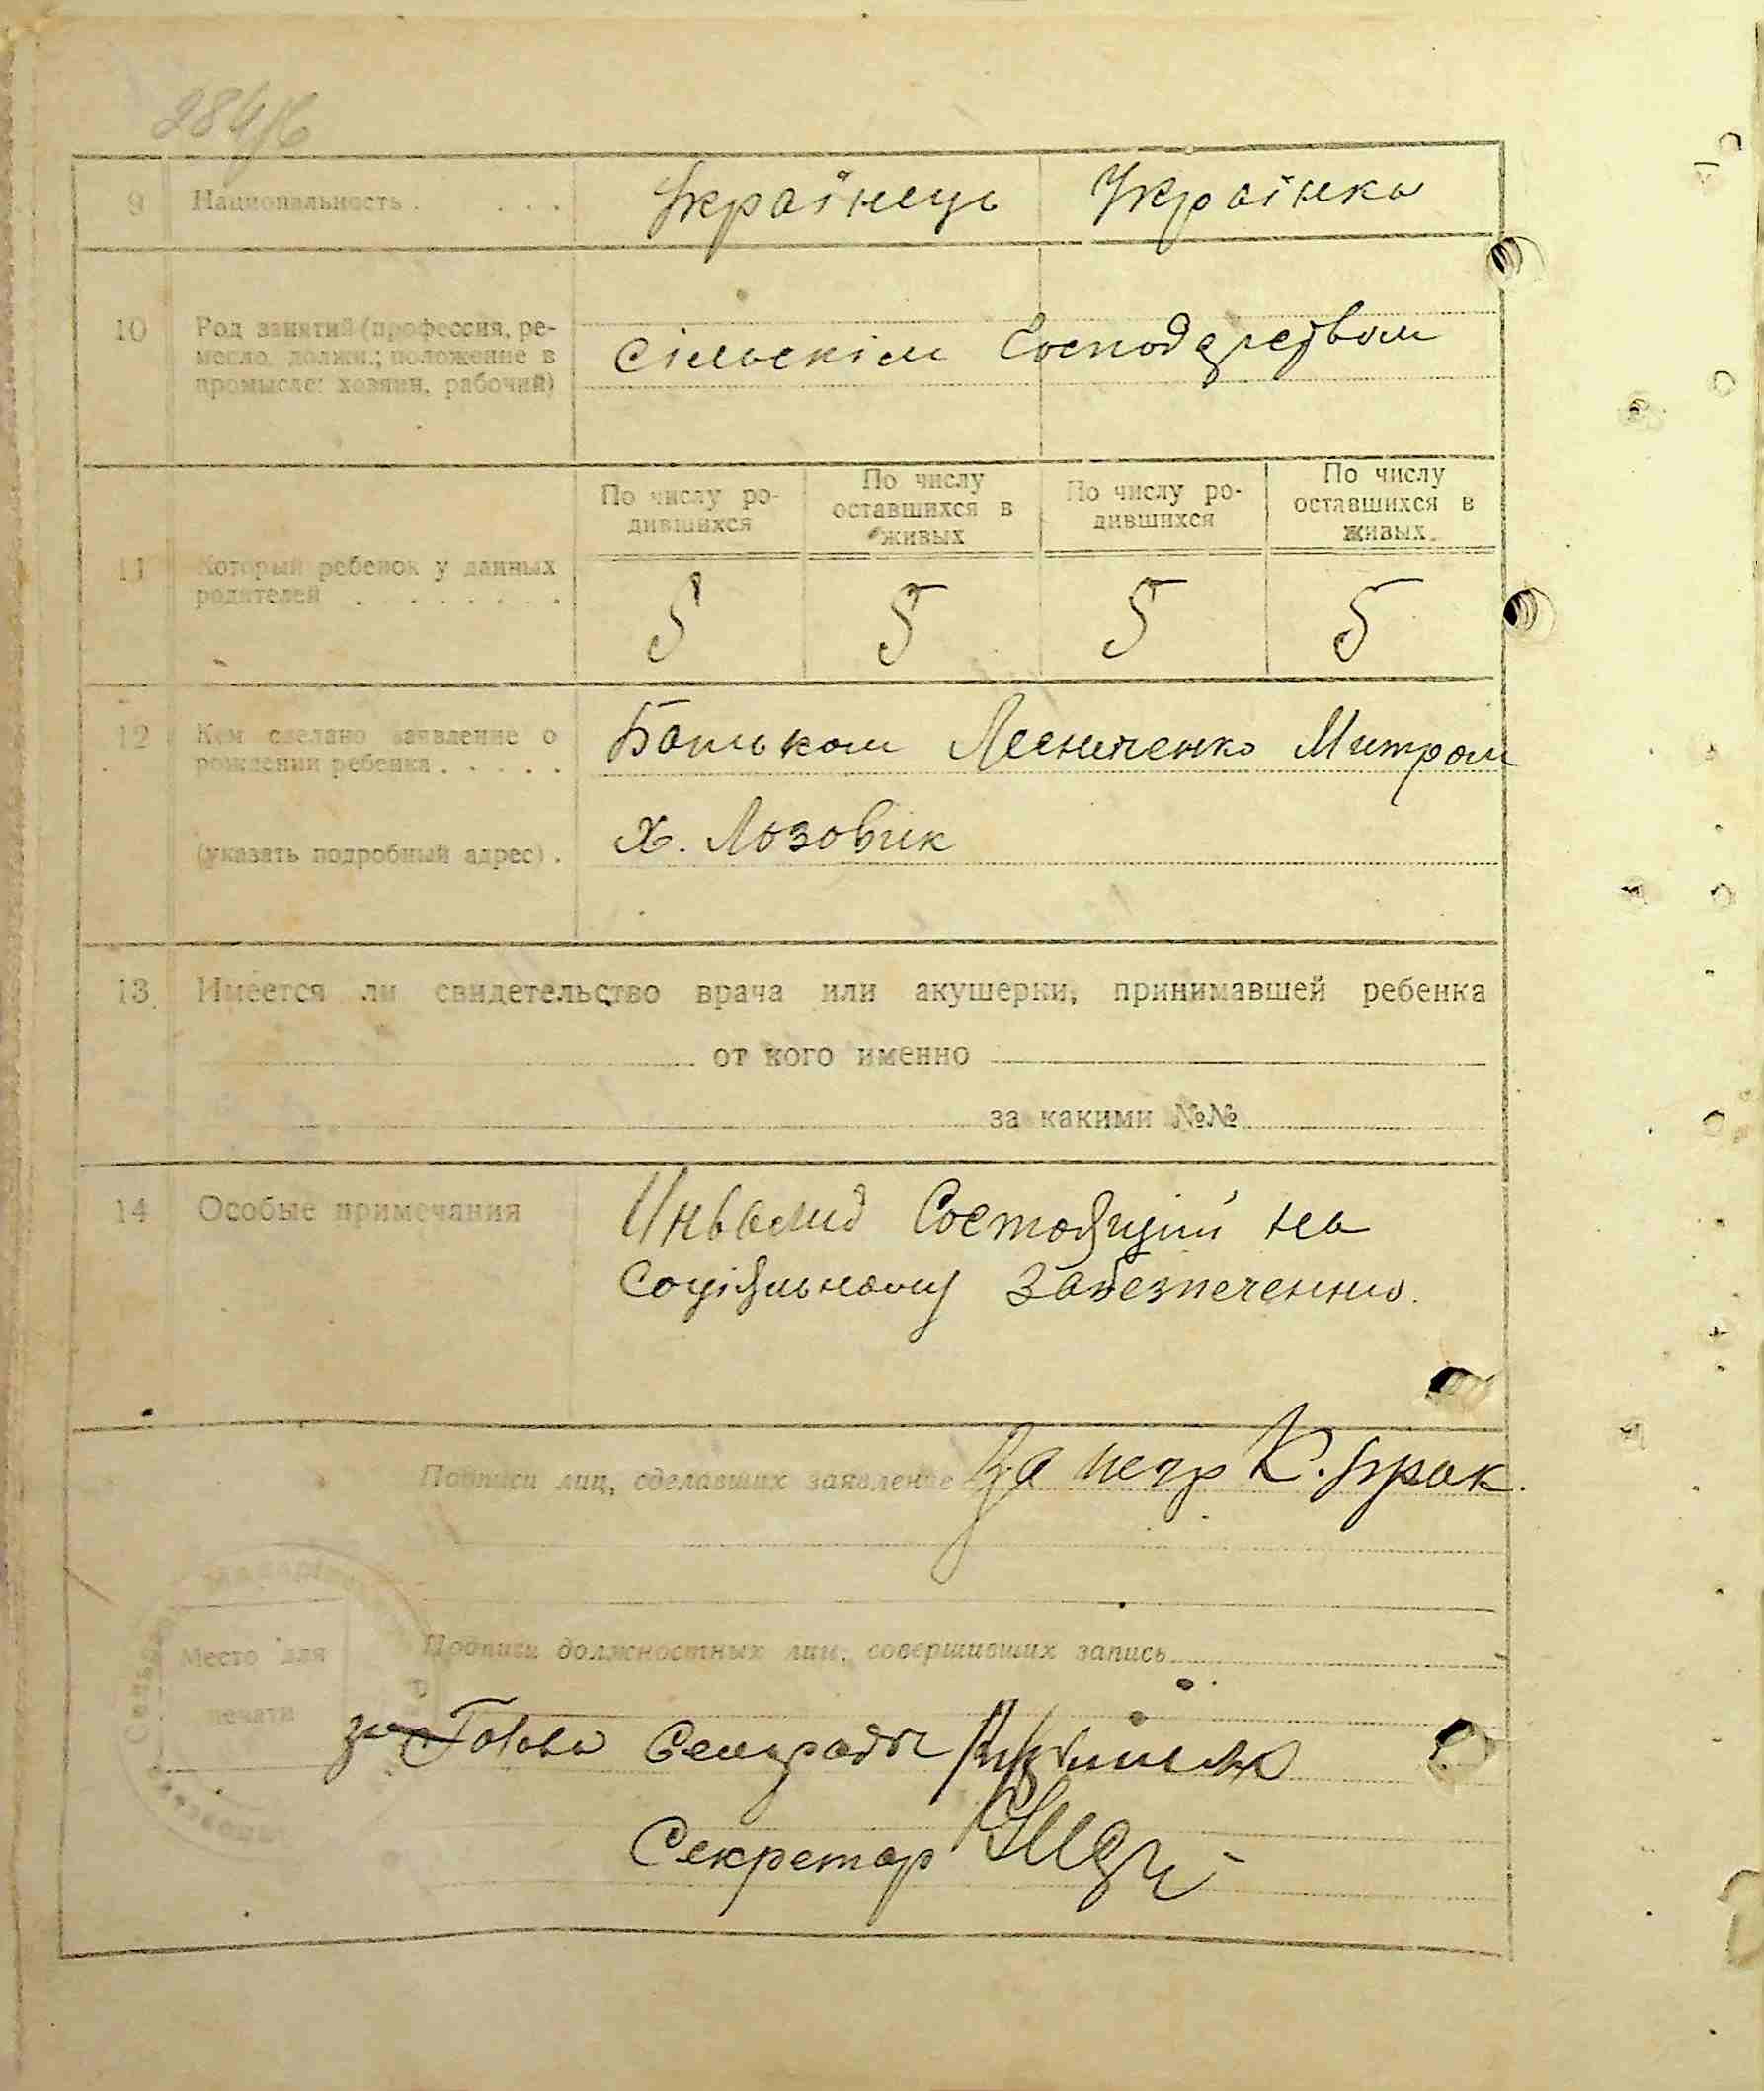 284/б
9 Национальность . . . . Українець Українка
10 Род занятий (профессия, ре-
месло, должн.; положение в
промысле: хозяин, рабочий)
сільскім Господарством
По числу ро-
дившихся
По числу
оставшихся в
живых
По числу ро-
дившихся
По числу
оставшихся в
живых
11 Который ребенок у данных
родителей . . . . . . . .
5 5 5 5
12 Кем сделано заявление о
рождении ребенка . . . . .
Батьком Лесниченко Митром
(указать подробный адрес) . х. Лозовик
13 Имеется ли свидетельство врача или акушерки, принимавшей ребенка
от кого именно
за какими №№
14 Особые примечания
Инвалид Состоящий на
Соціяльному Забезпеченню.
Подписи лиц, сделавших заявление За негр К.
Место для
печати
Подписи должностных лиц, совершивших запись
за Голова Сельради
Секретар